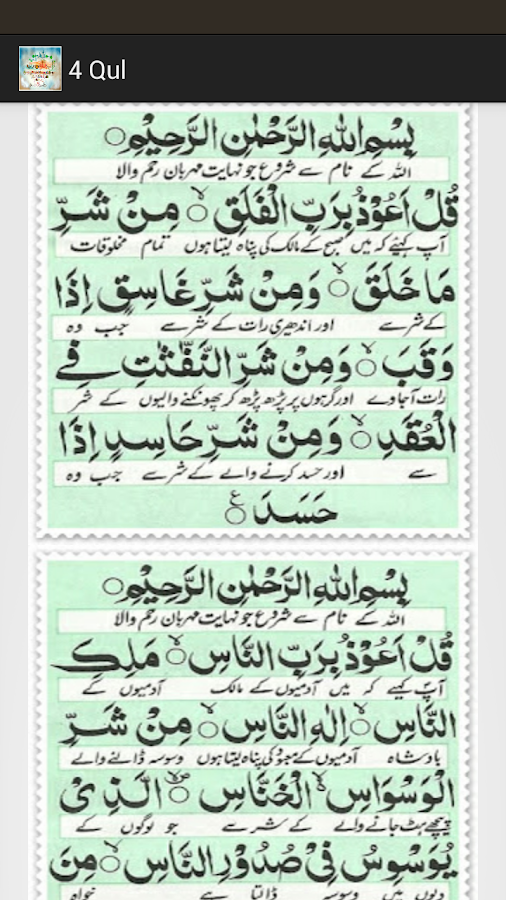 4 Qul
بِسْمِ اللهِ الرَّحْمٰنِ الرَّحِيْمِ○
اللہ کے نام سے شروع جو نہایت مہربان رحم والا
قُلْ اَعُوْذُ بِرَبِّ الْفَلَقِ ○ۙ مِنْ شَرِّ
آپ کہیئے کہ میں صبح کے مالک کی پناہ لیتا ہوں تمام مخلوقات
مَا خَلَقَ ○ۙ وَمِنْ شَرِّ غَاسِقٍ اِذَا
کے شر سے اور اندھیری رات کے شر سے جب وہ
وَقَبَ ○ۙ وَمِنْ شَرِّ النَّفّٰثٰتِ فِي
رات آجاوے اور گرہوں پر پڑھ پڑھ کر پھونکنے والیوں کے شر
الْعُقَدِ ○ۙ وَمِنْ شَرِّ حَاسِدٍ اِذَا
سے اور حسد کرنے والے کے شر سے جب وہ
حَسَدَ ○ع
بِسْمِ اللهِ الرَّحْمٰنِ الرَّحِيْمِ○
اللہ کے نام سے شروع جو نہایت مہربان رحم والا
قُلْ اَعُوْذُ بِرَبِّ النَّاسِ ○ۙ مَلِكِ
آپ کہیے کہ میں آدمیوں کے مالک آدمیوں کے
النَّاسِ ○ۙ اِلٰهِ النَّاسِ ○ۙ مِنْ شَرِّ
بادشاہ آدمیوں کے معبود کی پناہ لیتا ہوں وسوسہ ڈالنے والے
الْوَسْوَاسِ ۙ الْخَنَّاسِ ○ۙ الَّذِيْ
پیچھے ہٹ جانے والے کے شر سے جو لوگوں کے
يُوَسْوِسُ فِيْ صُدُوْرِ النَّاسِ ○ۙ مِنَ
دلوں میں وسوسہ ڈالتا ہے خواہ